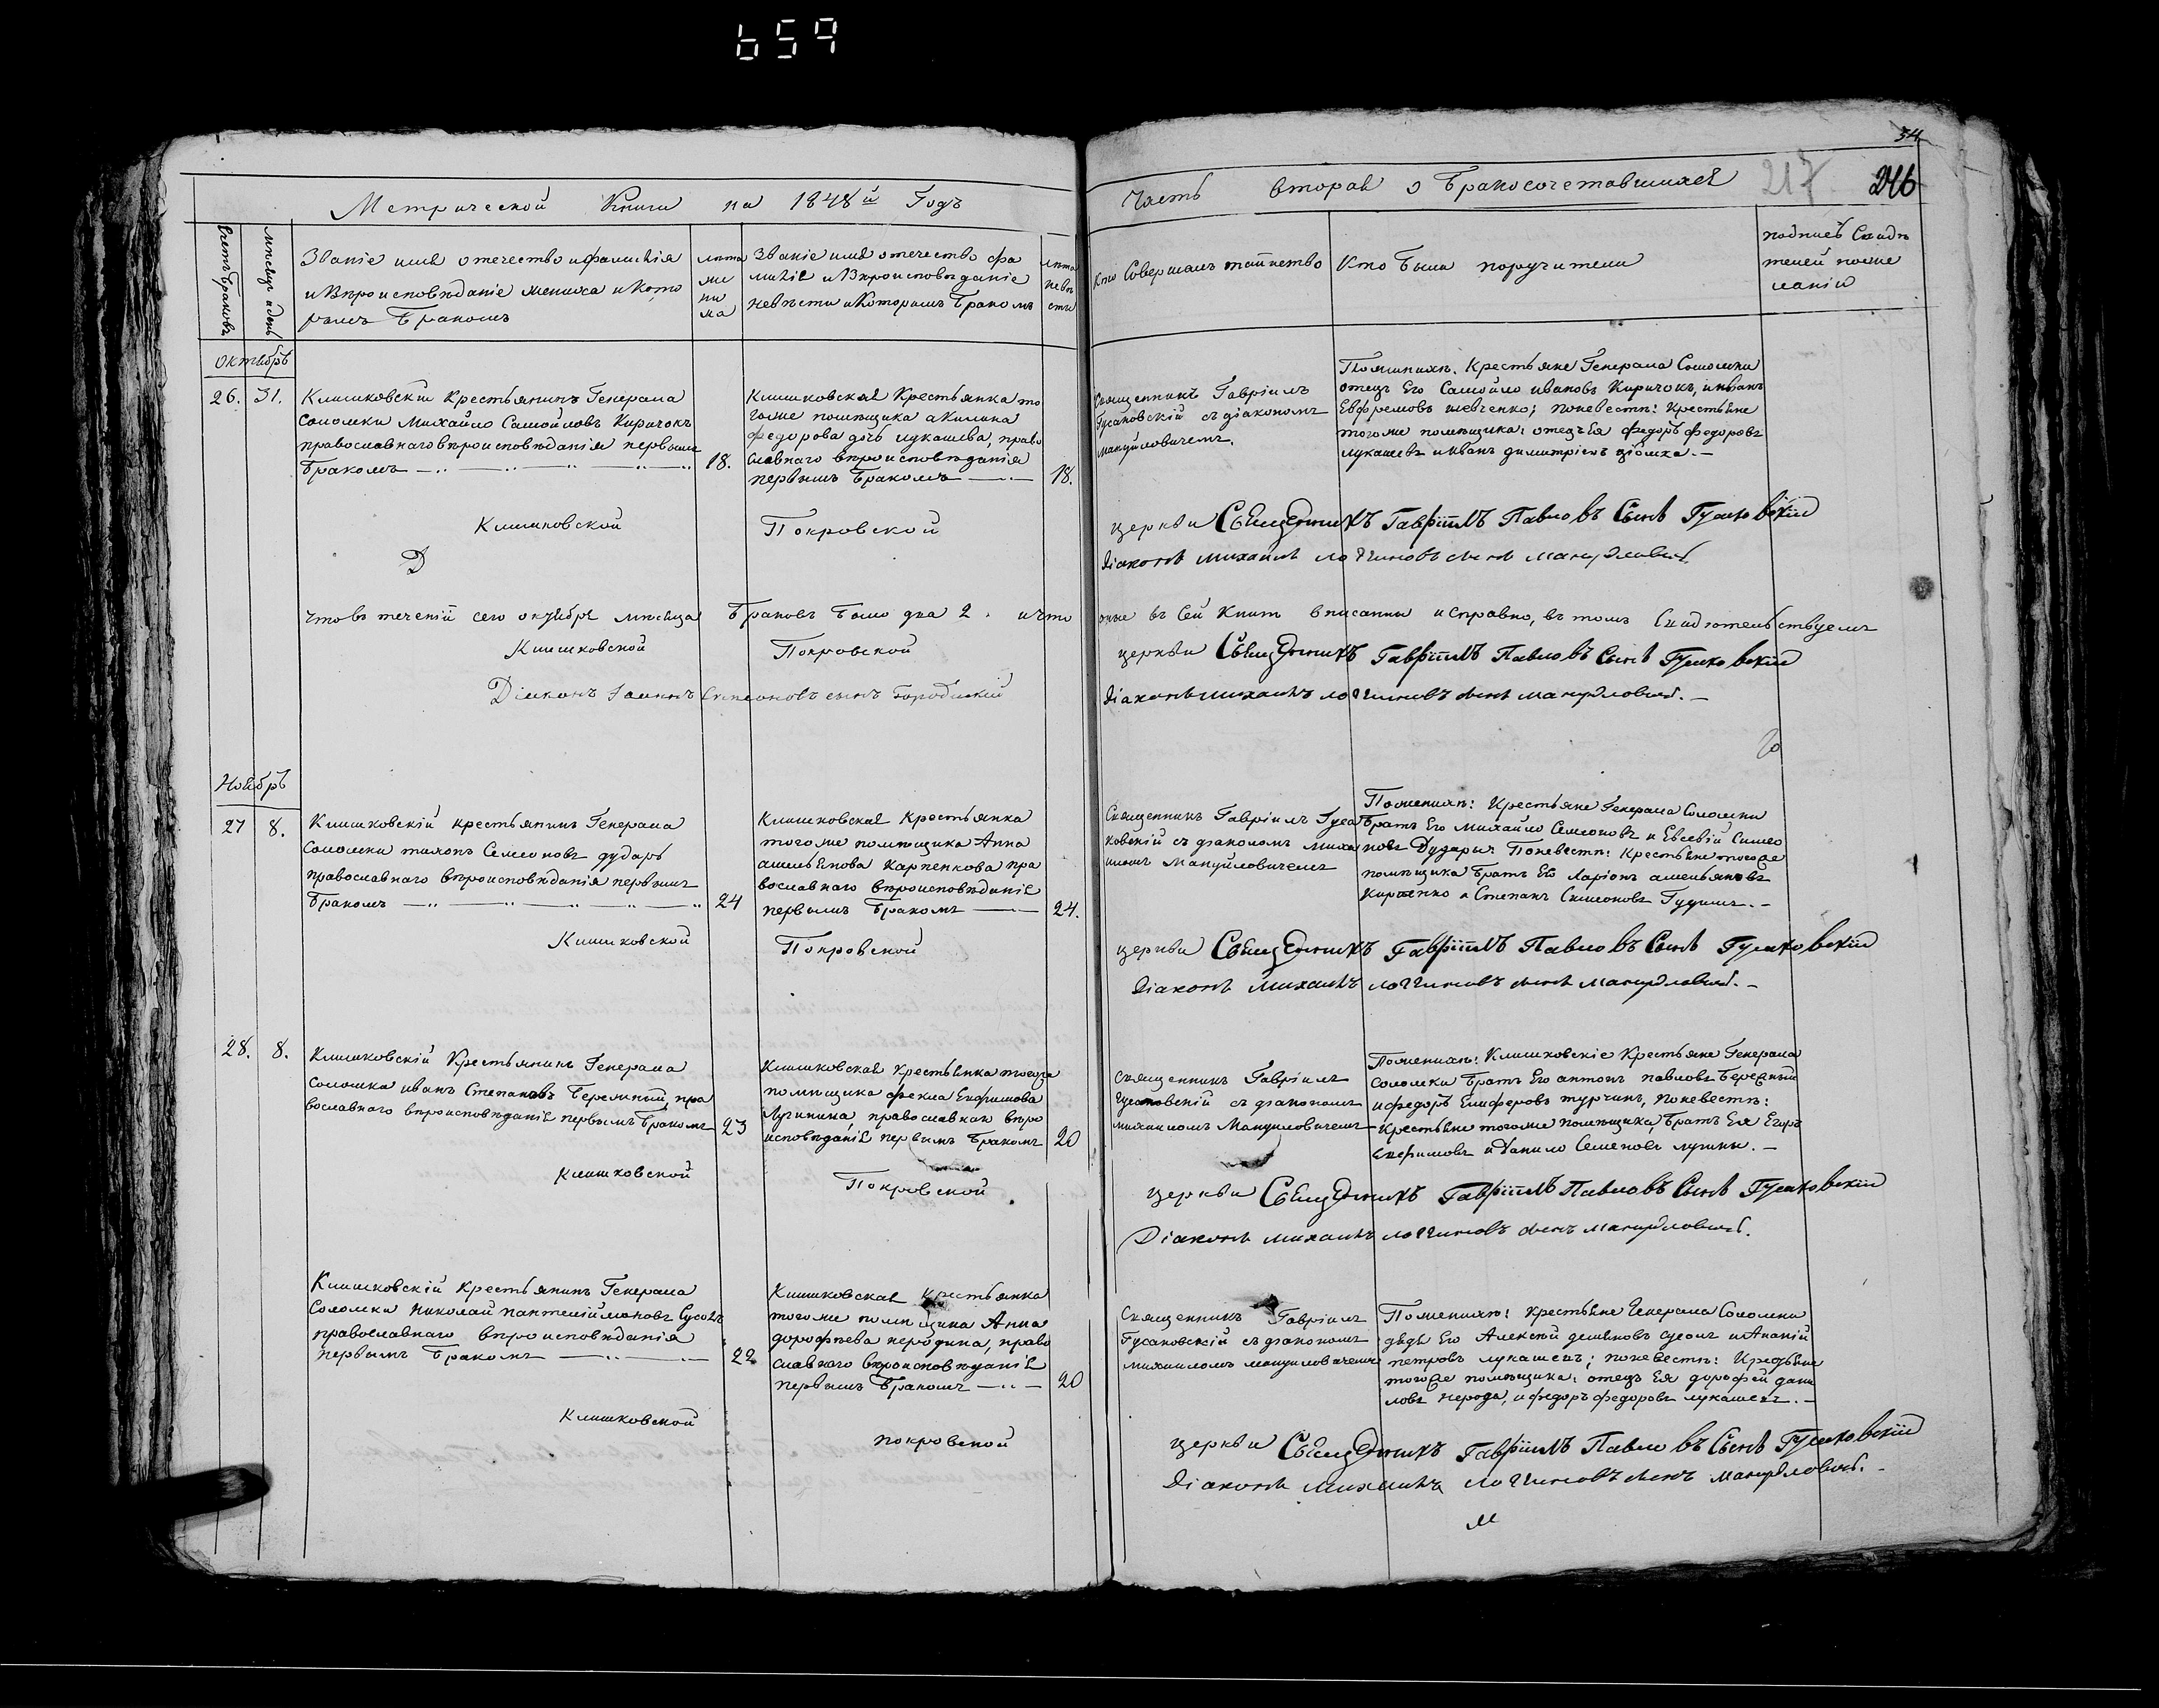 659
34
217
246
Метрической Книги на 1848й Годъ
Часть вторая о бракосочетавшихся
Счетъ браковъ
мѣсяцъ и день
Званіе имя отечество и фамилія
и Вѣроисповѣданіе жениха и кото
рымъ бракомъ
лѣта
же
ни
ха
Званіе имя отечество фа
милія и Вѣроисповѣданіе
невѣсты и Которымъ бракомъ
лѣта
невѣ
сты
Кто Совершалъ таинство
Кто были поручители
подписъ Свидѣ
телей по же
ланію
Октябрь
26. 31.
Клишковскій Крестьянинъ Генерала
Соломки Михайло Самойловъ Киричокъ
православнаго вѣроисповѣданія первымъ
бракомъ
18.
Клишковская Крестьянка то
гоже помѣщика Акилина
федорова дочь лукашева, право
славнаго вѣроисповѣданія
первымъ бракомъ
18.
Священникъ Гавріилъ
Гусаковскій съ діакономъ
мануйловичемъ.
По женихѣ. Крестьяне Генерала Соломки
отецъ Его Самойло ивановъ Киричокъ, и иванъ
Евфремовъ шевченко; по невестѣ: Крестьяне
тогоже помѣщика: отецъ Ея федоръ федоровъ
лукашевъ и иванъ димитріевъ
Клишковской Покровской церкви Священникъ Гавріилъ Павловъ Сынъ Гусаковскій
Діаконъ Михаилъ логгиновъ сынъ мануйловичъ
Что въ теченіи сего октября мѣсяца браковъ было два 2. и что оные въ сей книгѣ вписанны исправно, въ томъ свидѣтельствуемъ
Клишковской Покровской церкви Священникъ Гавріилъ Павловъ Сынъ Гусаковскій
Діаконъ Іоаннъ Симеоновъ сынъ Городискій
Діаконъ михаилъ логгиновъ сынъ мануйловичъ.
Ноябрь
27 8.
Клишковскій крестьянинъ Генерала
Соломки тихонъ Семеновъ дударь
православнаго вѣроисповѣданія первымъ
бракомъ
24
Клишковская Крестьянка
тогоже помѣщика Анна
амельянова Карпенкова пра
вославнаго вѣроисповѣданія
первымъ бракомъ
24.
Священникъ Гавріилъ Гуса
ковскій съ діакономъ Миха
иломъ Мануйловичемъ
По женихѣ: Крестьяне Генерала Соломки
братъ Его Михайло Семеоновъ и Евсевій Симео
новъ Дудари: По невестѣ: Крестьяне тогоже
помѣщика братъ Ея Ларіонъ амельяновъ
Карпенко и Степанъ Симеоновъ
Клишковской Покровской церкви Священникъ Гавріилъ Павловъ Сынъ Гусаковскій
Діаконъ Михаилъ логгиновъ сынъ мануйловичъ.
28. 8.
Клишковскій Крестьянинъ Генерала
Соломка иванъ Степановъ Бережный пра
вославнаго вѣроисповѣданія первымъ бракомъ
23
Клишковская Крестьянка тогоже
помѣщика фекла Евфимова
Лучиника, православнаго вѣро
исповѣданія первымъ бракомъ
20
Священникъ Гавріилъ
Гусаковскій съ діакономъ
михаиломъ Мануиловичемъ
По женихѣ: Клишковскіе Крестьяне Генерала
соломки братъ Его антонъ павловъ бережный
и федоръ Елиферовъ турчинъ, по невестѣ:
Крестьяне тогоже помѣщика братъ Ея Егоръ
Евфимовъ и Данило Семеновъ лучины.
Клишковской Покровской церкви Священникъ Гавріилъ Павловъ Сынъ Гусаковскій
Діаконъ михаилъ логгиновъ сынъ мануйловичъ.
Клишковскій Крестьянинъ Генерала
Соломки Николай пантелiймоновъ
православнаго вѣроисповѣданія
первымъ бракомъ
22
Клишковская крестьянка
тогоже помѣщика Анна
дорофѣева неродина, право
славнаго вѣроисповѣданія
первымъ бракомъ
20
Священникъ Гавріилъ
Гусаковскій съ діакономъ
михаиломъ мануиловичемъ
По женихѣ: крестьяне Генерала Соломки
дядя Его Алексій и Ананій
петровъ лукашевъ; по невестѣ: Крестьяне
тогоже помѣщика: отецъ Ея дорофей дани
ловъ нерода, и федоръ федоровъ лукашевъ.
Клишковской покровской церкви Священникъ Гавріилъ Павловъ Сынъ Гусаковскій
Діаконъ михаилъ логгиновъ сынъ мануйловичъ.